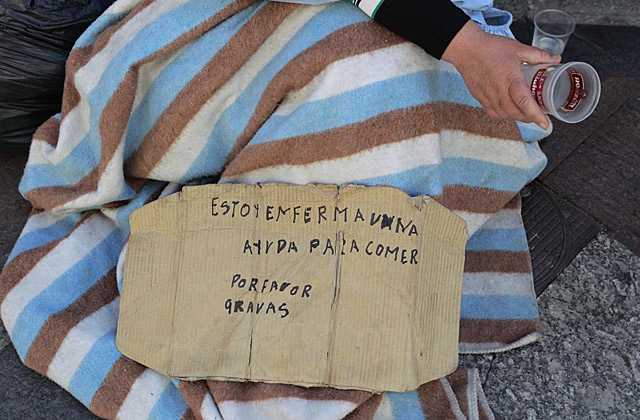 ESTOY ENFERMA UNA
AYUDA PARA COMER
POR FAVOR
GRAVAS